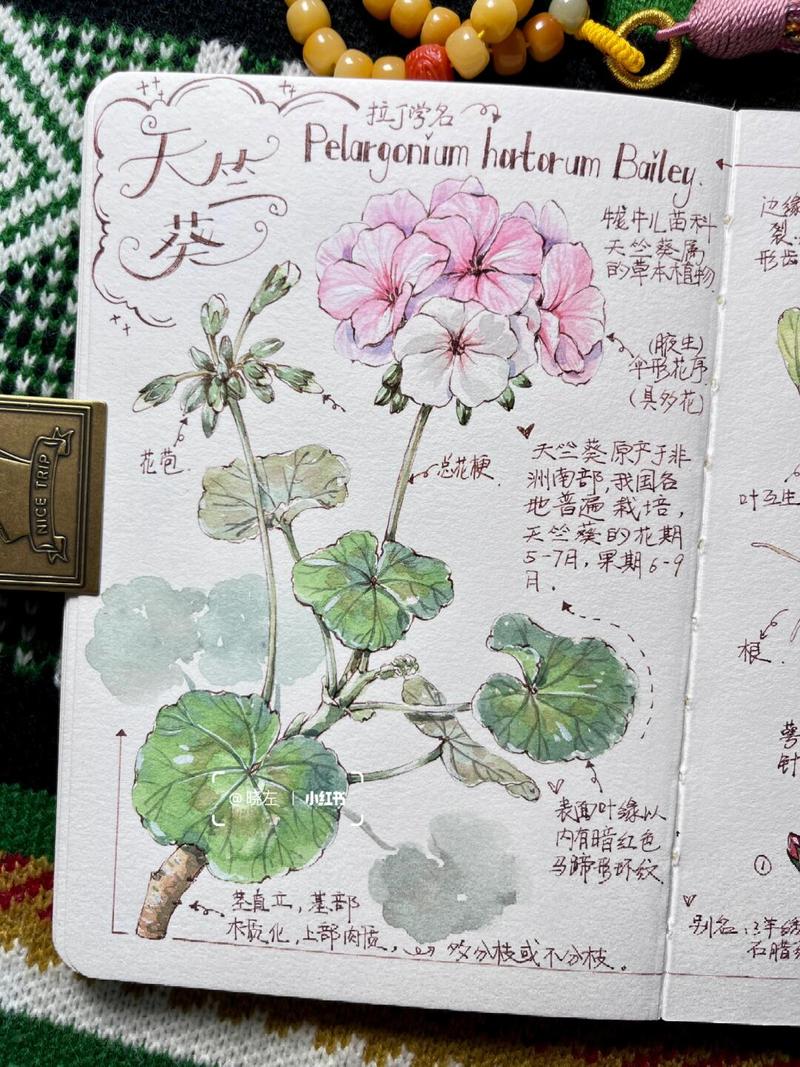 天竺
葵
拉丁学名
Pelargonium hortorum Bailey.
牻牛儿苗科
天竺葵属
的草本植物
(腋生)
伞形花序
(具多花)
花苞.
总花梗.
天竺葵原产于非
洲南部,我国各
地普遍栽培,
天竺葵的花期
5-7月,果期6-9
月.
表面叶缘以
内有暗红色
马蹄形环纹.
茎直立,基部
木质化,上部肉质,
多分枝或不分枝。
NICE TRIP
@晓左 | 小红书
边缘
裂
形齿
叶互生
根.
萼
针
①
别名:
石腊